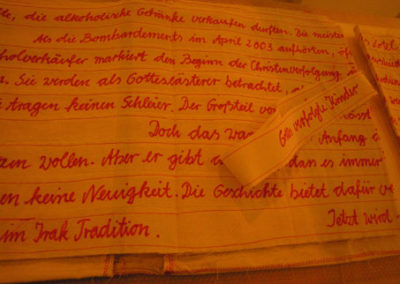 te, die alkoholische Getränke verkaufen durften. Die meisten
Als die Bombardements im April 2003 aufhörten,
holverkäufer markiert den Beginn der Christenverfolgung
n. Sie werden als Gotteslästerer betrachtet,
e tragen keinen Schleier. Der Großteil
Doch das Anfang
zen wollen. Aber er gibt das es immer
en keine Neuigkeit. Die Geschichte bietet dafür
im Irak Tradition. Jetzt wird
verfolgte Kinder